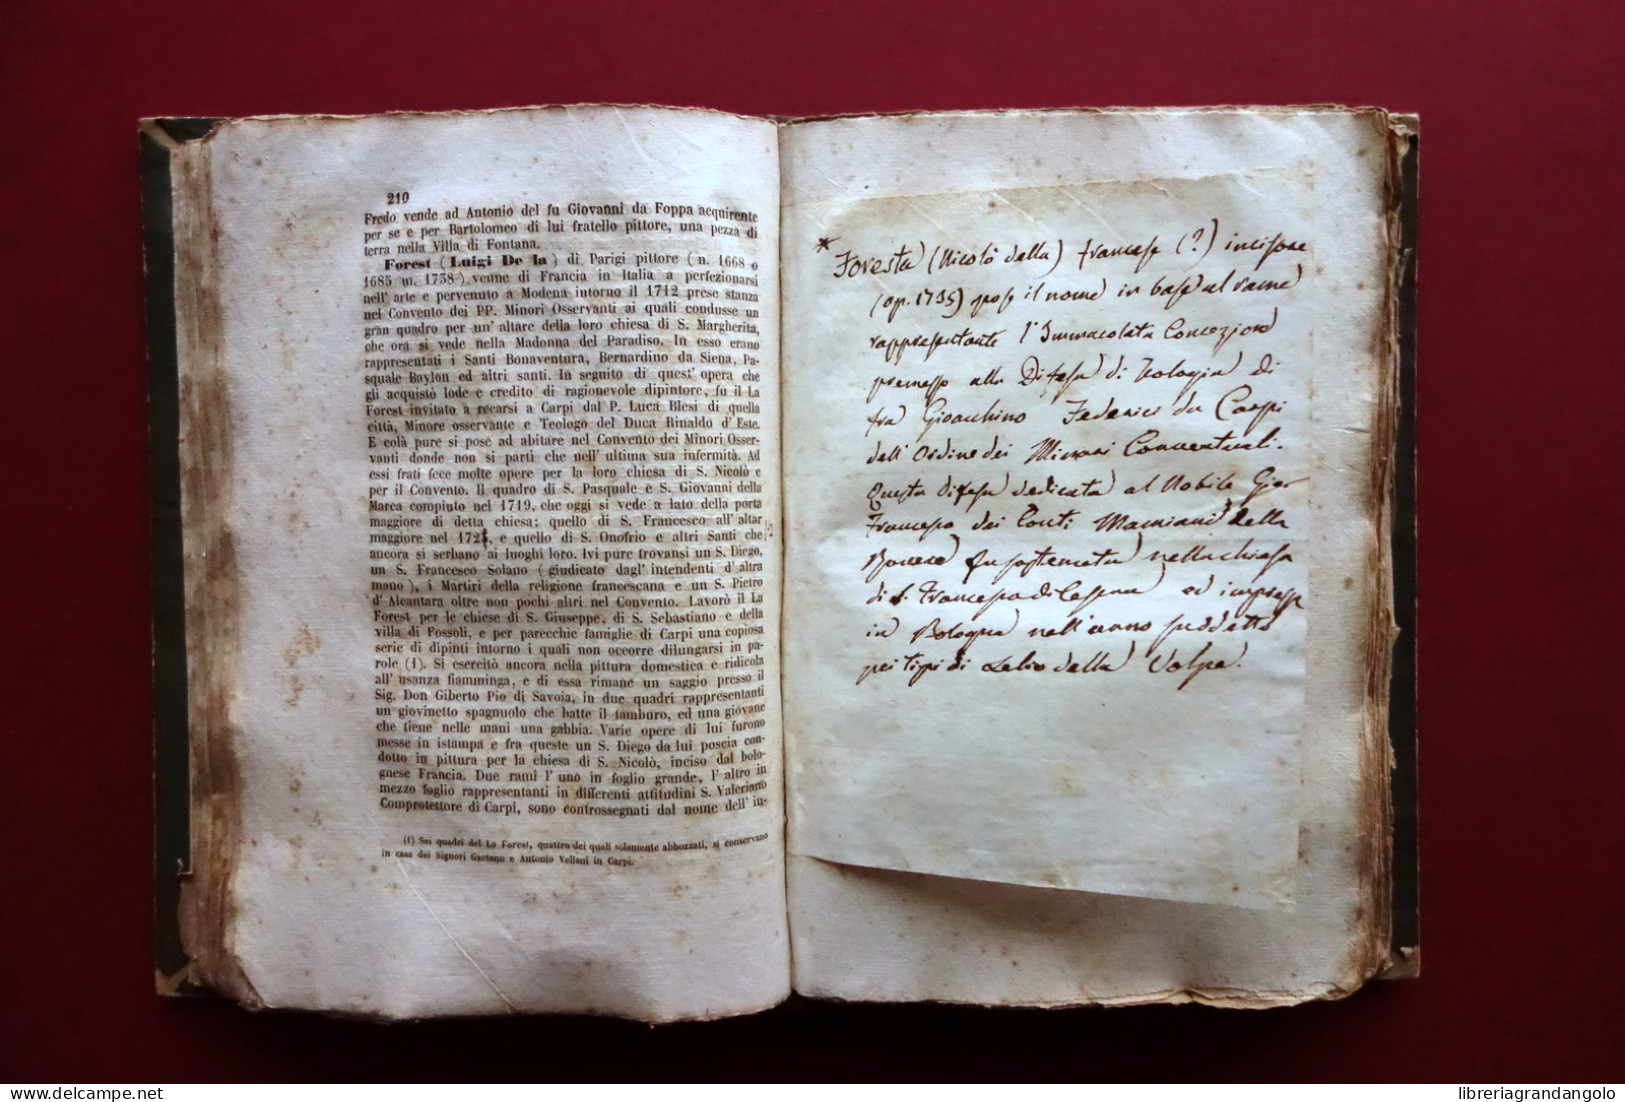 210
Fredo vende ad Antonio del fu Giovanni da Foppa acquirente
per se e per Bartolomeo di lui fratello pittore, una pezza di
terra nella Villa di Fontana.
Forest (Luigi De la) di Parigi pittore (n. 1668 o
1685 m. 1738) venne di Francia in Italia a perfezionarsi
nell' arte e pervenuto a Modena intorno il 1712 prese stanza
nel Convento dei PP. Minori Osservanti ai quali condusse un
gran quadro per un' altare della loro chiesa di S. Margherita,
che ora si vede nella Madonna del Paradiso. In esso erano
rappresentati i Santi Bonaventura, Bernardino da Siena, Pa-
squale Baylon ed altri santi. In seguito di quest' opera che
gli acquistò lode e credito di ragionevole dipintore, fu il La
Forest invitato a recarsi a Carpi dal P. Luca Blesi di quella
città, Minore osservante e Teologo del Duca Rinaldo d' Este.
E colà pure si pose ad abitare nel Convento dei Minori Osser-
vanti donde non si partì che nell' ultima sua infermità. Ad
essi frati fece molte opere per la loro chiesa di S. Nicolò e
per il Convento. Il quadro di S. Pasquale e S. Giovanni della
Marca compiuto nel 1719, che oggi si vede a lato della porta
maggiore di detta chiesa; quello di S. Francesco all' altar
maggiore nel 172, e quello di S. Onofrio e altri Santi che
ancora si serbano ai luoghi loro. Ivi pure trovansi un S. Diego,
un S. Francesco Solano (giudicato dagl' intendenti d' altra
mano), i Martiri della religione francescana e un S. Pietro
d' Alcantara oltre non pochi altri nel Convento. Lavorò il La
Forest per le chiese di S. Giuseppe, di S. Sebastiano e della
villa di Fossoli, e per parecchie famiglie di Carpi una copiosa
serie di dipinti intorno i quali non occorre dilungarsi in pa-
role (1). Si esercitò ancora nella pittura domestica e ridicola
all' usanza fiamminga, e di essa rimane un saggio presso il
Sig. Don Giberto Pio di Savoia, in due quadri rappresentanti
un giovinetto spagnuolo che batte il tamburo, ed una giovane
che tiene nelle mani una gabbia. Varie opere di lui furono
messe in istampa e fra queste un S. Diego da lui poscia con-
dotto in pittura per la chiesa di S. Nicolò, inciso dal bolo-
gnese Francia. Due rami l' uno in foglio grande, l' altro in
mezzo foglio rappresentanti in differenti attitudini S. Valeriano
Comprotettore di Carpi, sono controssegnati dal nome dell' in-
(1) Sei quadri del La Forest, quattro dei quali solamente abbozzati, si conservano
in casa dei Signori Gaetano e Antonio Vellani in Carpi.
* Foresta (Nicolò della) francese (?) incisore
(op. 1735) pose il nome in base al rame
rappresentante l'Immacolata Concezione
premesso alla Difesa di Teologia di
fra Gioacchino Federici da Carpi
dell'Ordine dei Minori Conventuali.
Questa difesa dedicata al Nobile Gian
Francesco dei Conti Mamiani della
Rovere fu sostenuta nella chiesa
di S. Francesco di Cesena ed impressa
in Bologna nell'anno suddetto
pei tipi di Lelio dalla Volpe.
delcampe.net
libreriagrandangolo